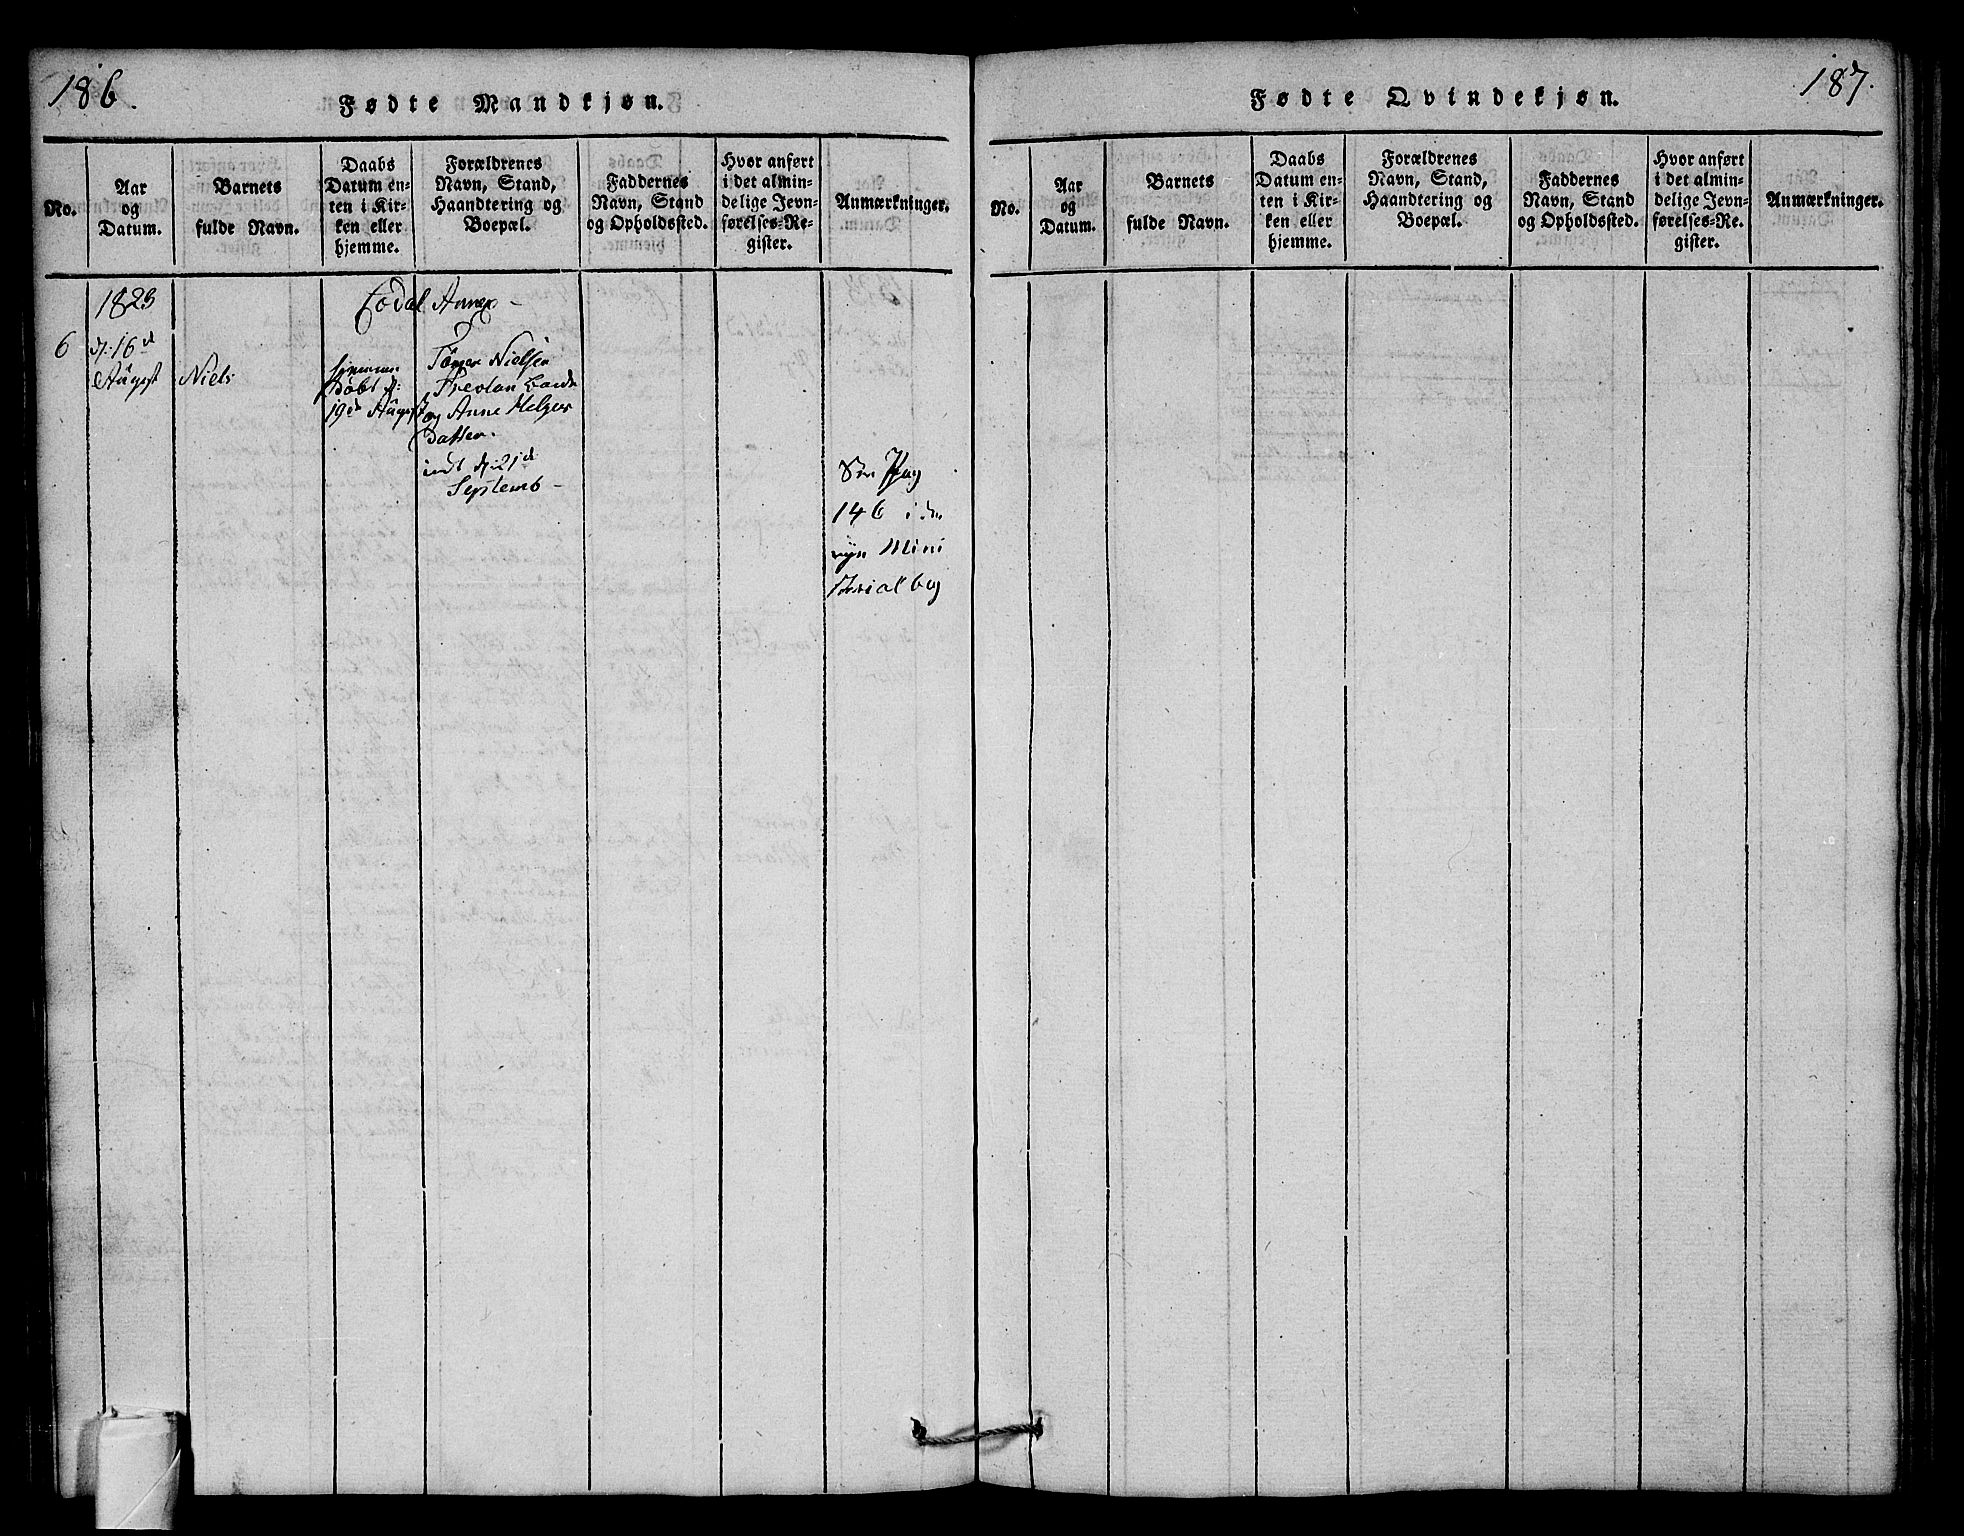 186.
Fødte Mandkjøn.
No.
Aar
og
Datum.
Barnets
fulde Navn.
Daabs
Datum en-
ten i Kir-
ken eller
hjemme.
Forældrenes
Navn, Stand,
Haandtering og
Boepæl.
Faddernes
Navn, Stand
og Opholdssted.
Hvor anført
i det almin-
delige Jevn-
førelses-Re-
gister.
Anmærkninger.
1823
Todal Annex
6
d: 16d
August
Niels
hiemme
døbt d:
19de August
Nielsen
og Anne
Datter.
indt d: 21d
Septemb
See Pag
146 i den
nye Mini
sterialbog
187.
Fødte Qvindekjøn.
No.
Aar
og
Datum.
Barnets
fulde Navn.
Daabs
Datum en-
ten i Kir-
ken eller
hjemme.
Forældrenes
Navn, Stand,
Haandtering og
Boepæl.
Faddernes
Navn, Stand
og Opholdssted.
Hvor anført
i det almin-
delige Jevn-
førelses-Re-
gister.
Anmærkninger.